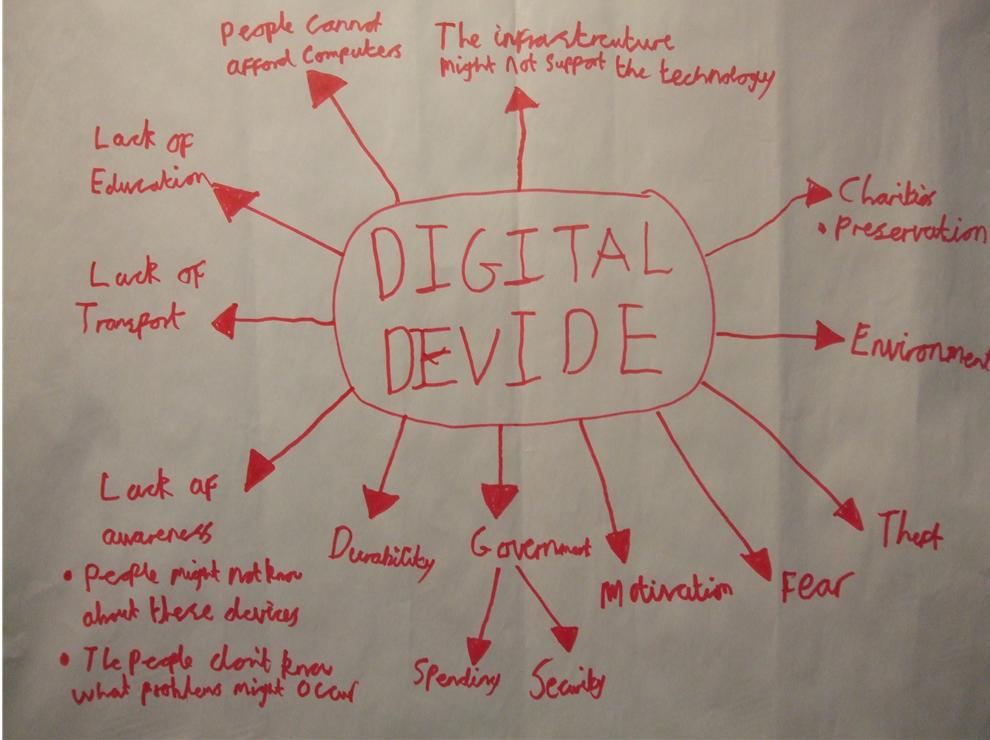 People Cannot
afford Computers
The infrastructure
might not support the technology
Lack of
Education
Charities
• Preservation
DIGITAL
DEVIDE
Lack of
Transport
Environment
Lack of
awareness
• People might not know
about these devices
• The people don't know
what problems might occur
Durability
Government
Spending
Security
Motivation
Fear
Theft